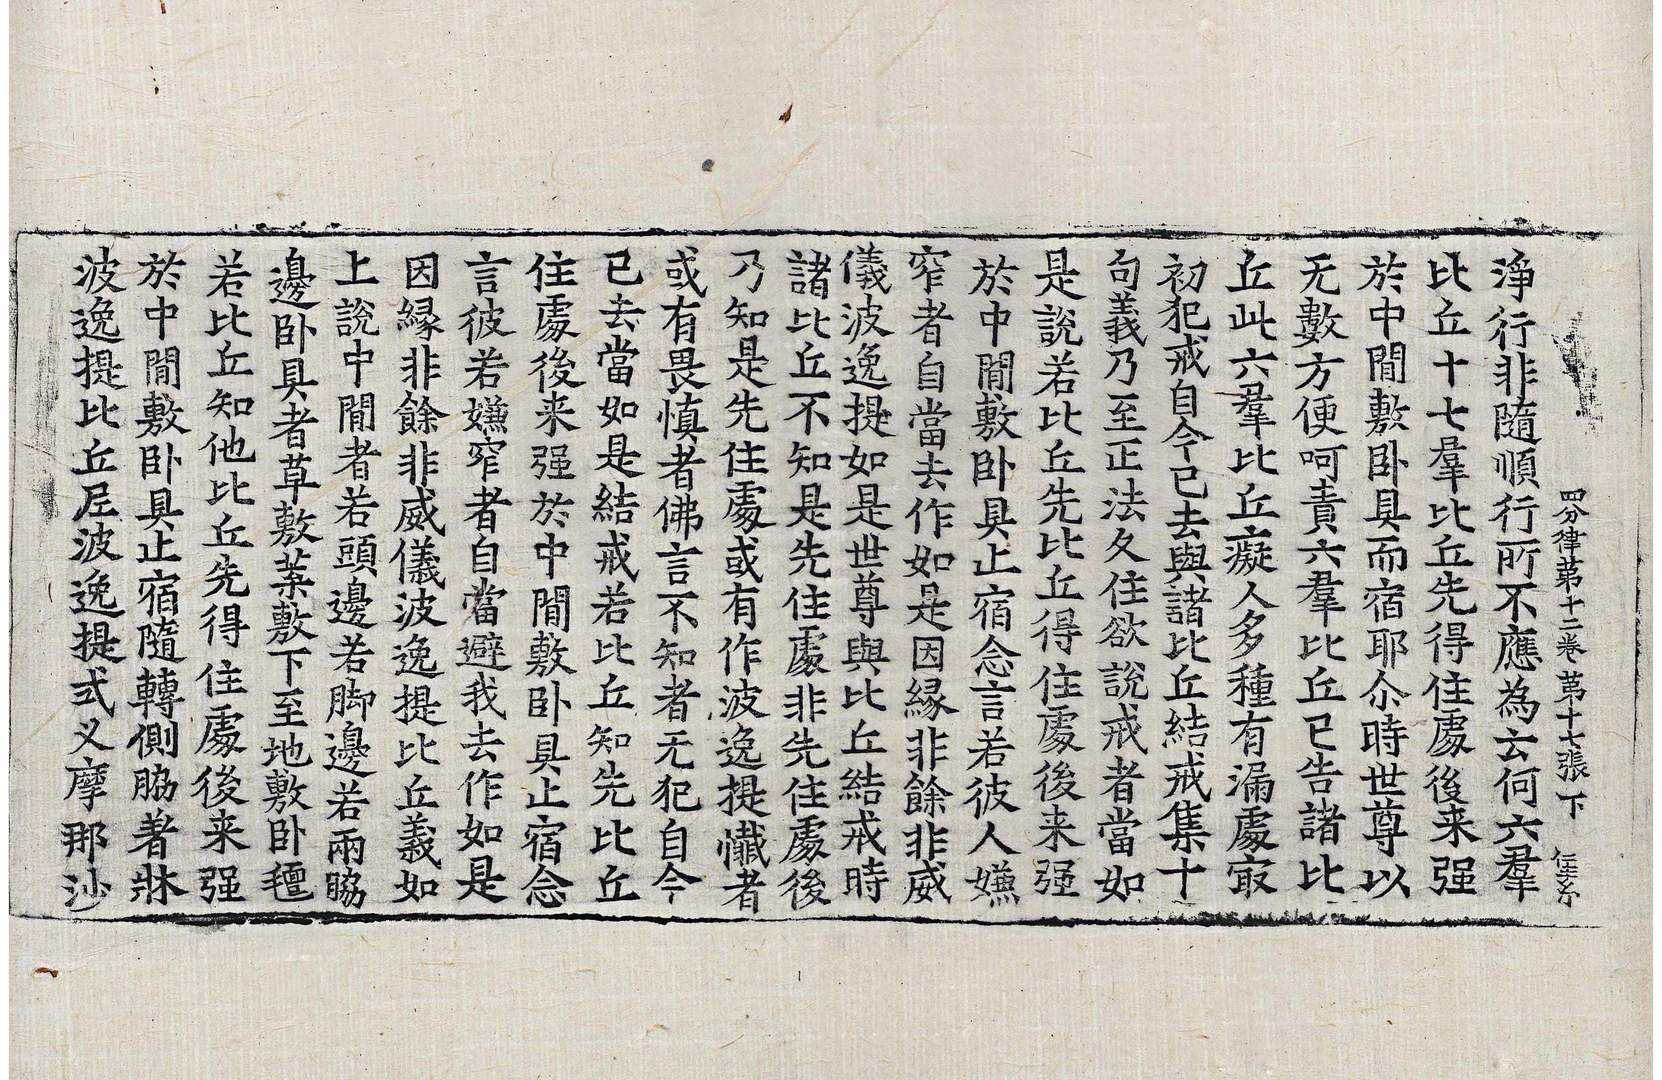 四分律第十二卷 第十七張 下
淨行非隨順行所不應為云何六羣
比丘十七羣比丘先得住處後来强
於中閒敷卧具而宿耶尒時世尊以
无數方便呵責六羣比丘已告諸比
丘此六羣比丘癡人多種有漏處㝡
初犯戒自今已去與諸比丘結戒集十
句義乃至正法久住欲說戒者當如
是說若比丘先比丘得住處後来强
於中閒敷卧具止宿念言若彼人嫌
窄者自當去作如是因緣非餘非威
儀波逸提如是世尊與比丘結戒時
諸比丘不知是先住處非先住處後
乃知是先住處或有作波逸提懺者
或有畏慎者佛言不知者无犯自今
已去當如是結戒若比丘知先比丘
住處後来强於中閒敷卧具止宿念
言彼若嫌窄者自當避我去作如是
因緣非餘非威儀波逸提比丘義如
上說中閒者若頭邊若脚邊若兩脇
邊卧具者草敷葉敷下至地敷卧氊
若比丘知他比丘先得住處後来强
於中閒敷卧具止宿隨轉側脇著牀
波逸提比丘尼波逸提式叉摩那沙